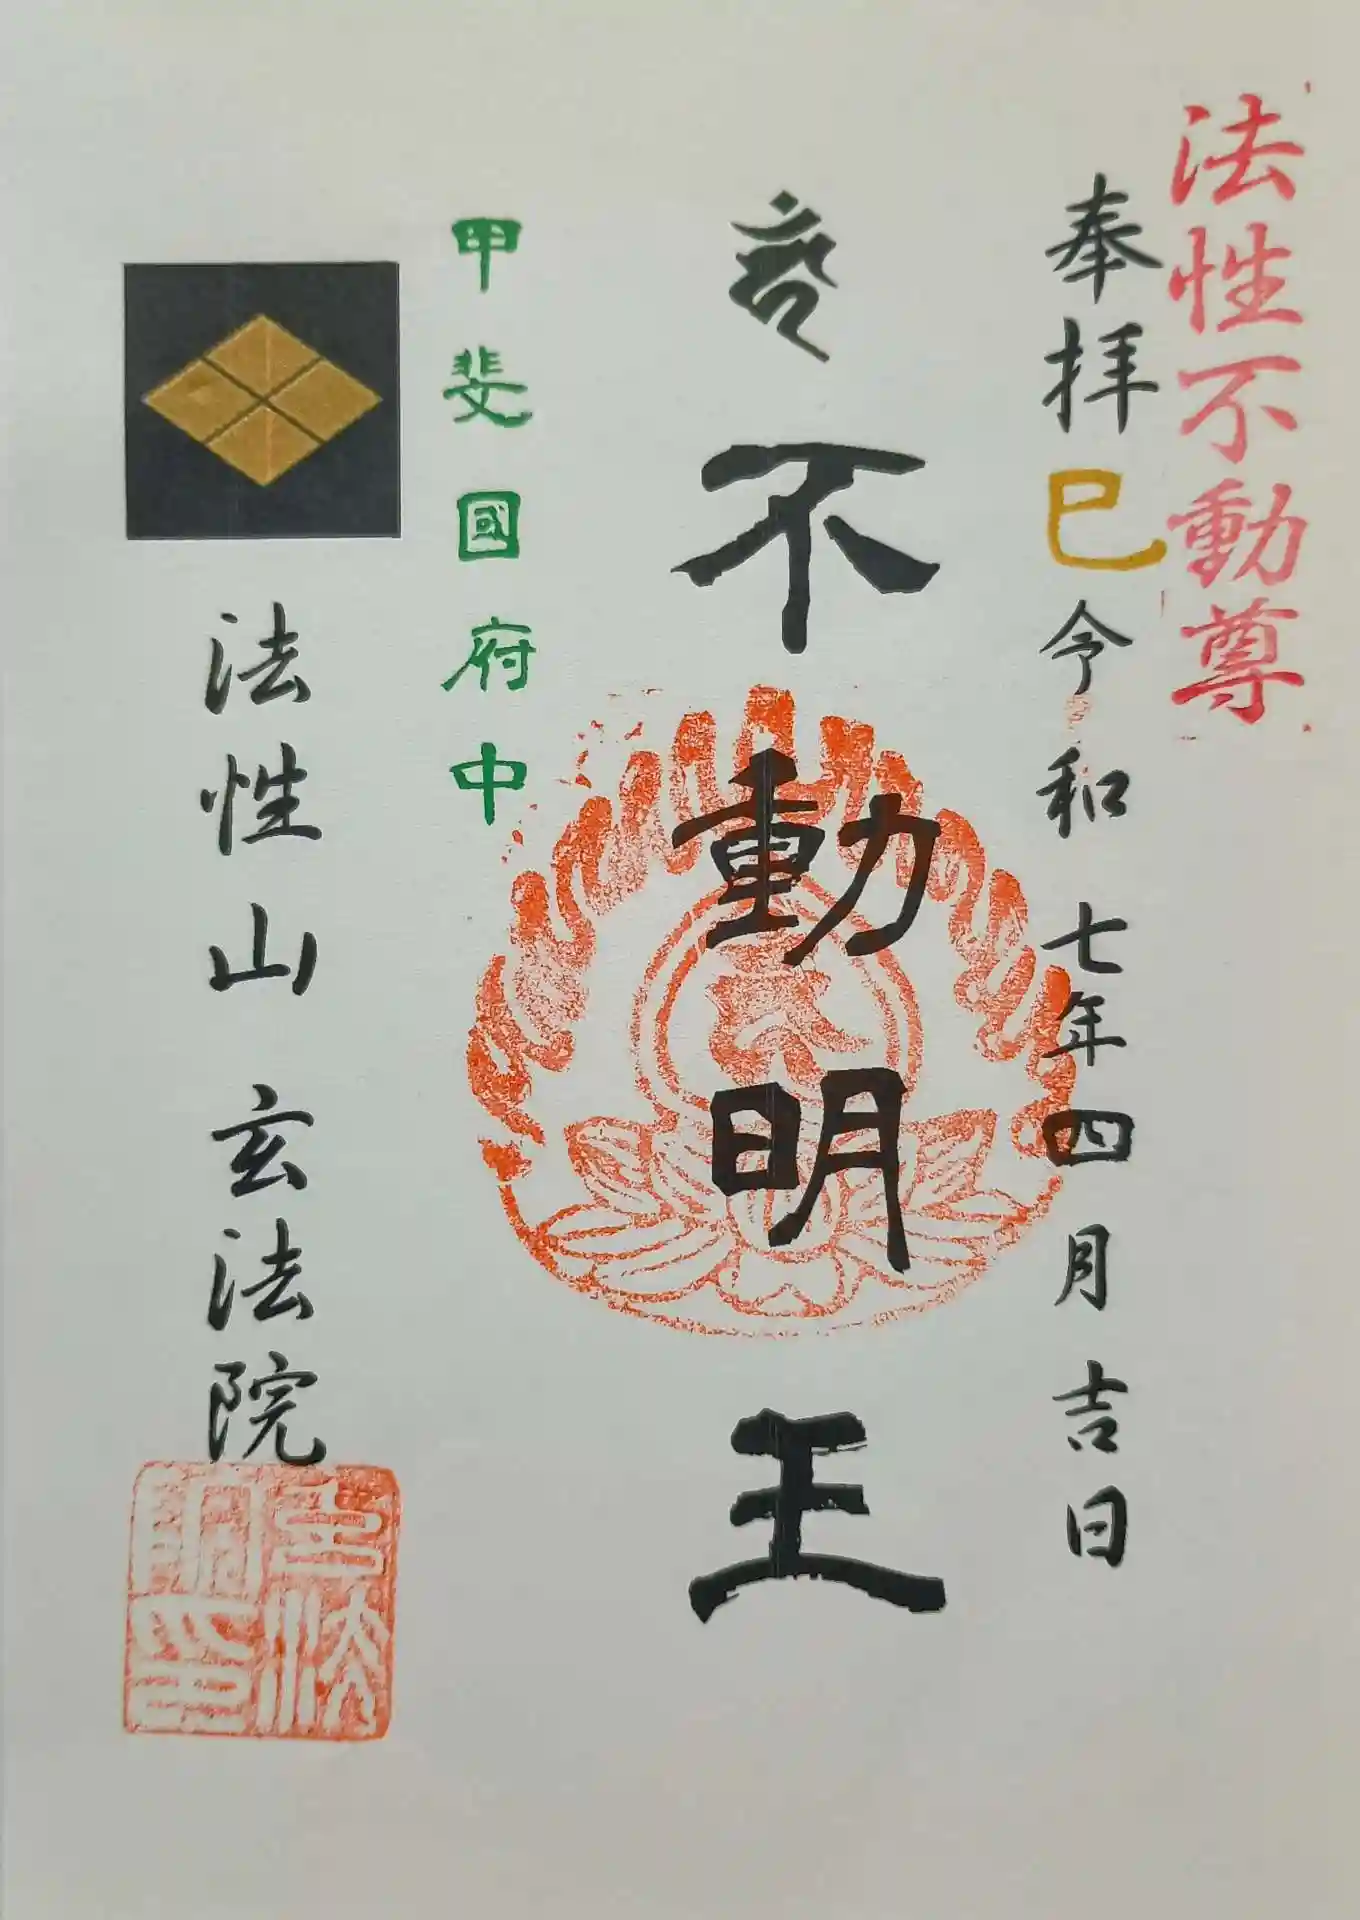 法性不動尊
奉拝 巳 令和 七年四月吉日
不動明王
甲斐國府中
法性山 玄法院